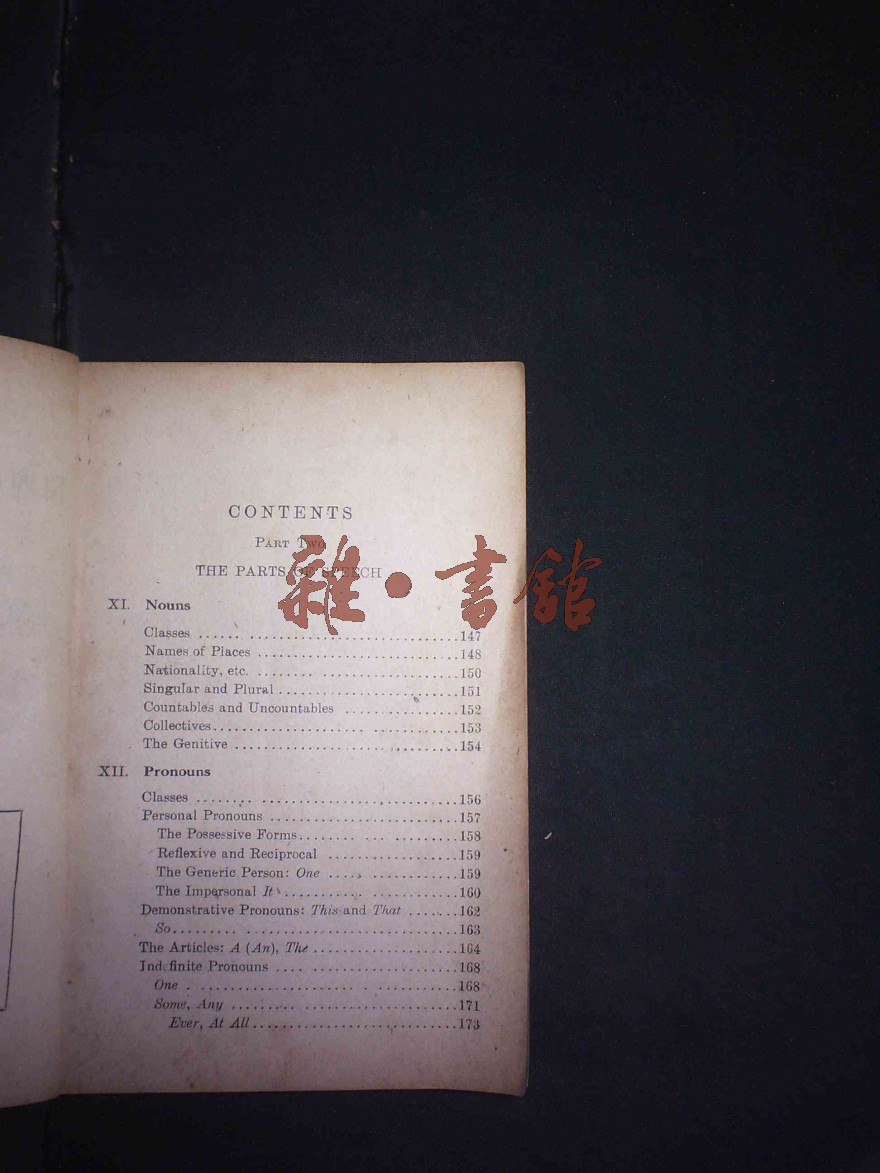 CONTENTS
PART TWO
THE PARTS OF SPEECH
雜·書館
XI. Nouns
Classes ...... ..................................147
Names of Places ................................148
Nationality, etc. ................................150
Singular and Plural ............................151
Countables and Uncountables ..................152
Collectives..................... ..............153
The Genitive ....................................154
XII. Pronouns
Classes ........ ................................156
Personal Pronouns ..............................157
The Possessive Forms......... ... ..........158
Reflexive and Reciprocal ....................159
The Generic Person: One ....................159
The Impersonal It ............ .............160
Demonstrative Pronouns: This and That ........162
So.......... ..................................163
The Articles: A (An), The .......................164
Indefinite Pronouns .... .......................168
One . ....................... . ..............168
Some, Any ....................................171
Ever, At All.................................173